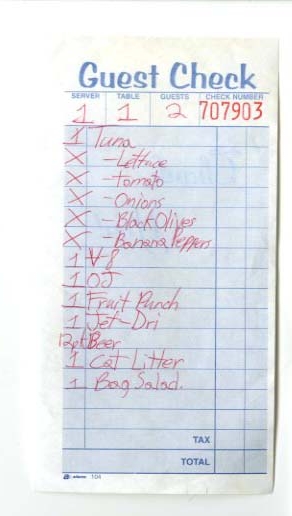 Guest Check
SERVER TABLE GUESTS CHECK NUMBER
1 1 2 707903
1 Tuna
X -Lettuce
X -tomato
X -Onions
X -Black Olives
X -Banana Peppers
1 V-8
1 OJ
1 Fruit Punch
1 Jet-Dri
12pk Beer
1 Cat Litter
1 Bag Salad.
TAX
TOTAL
104